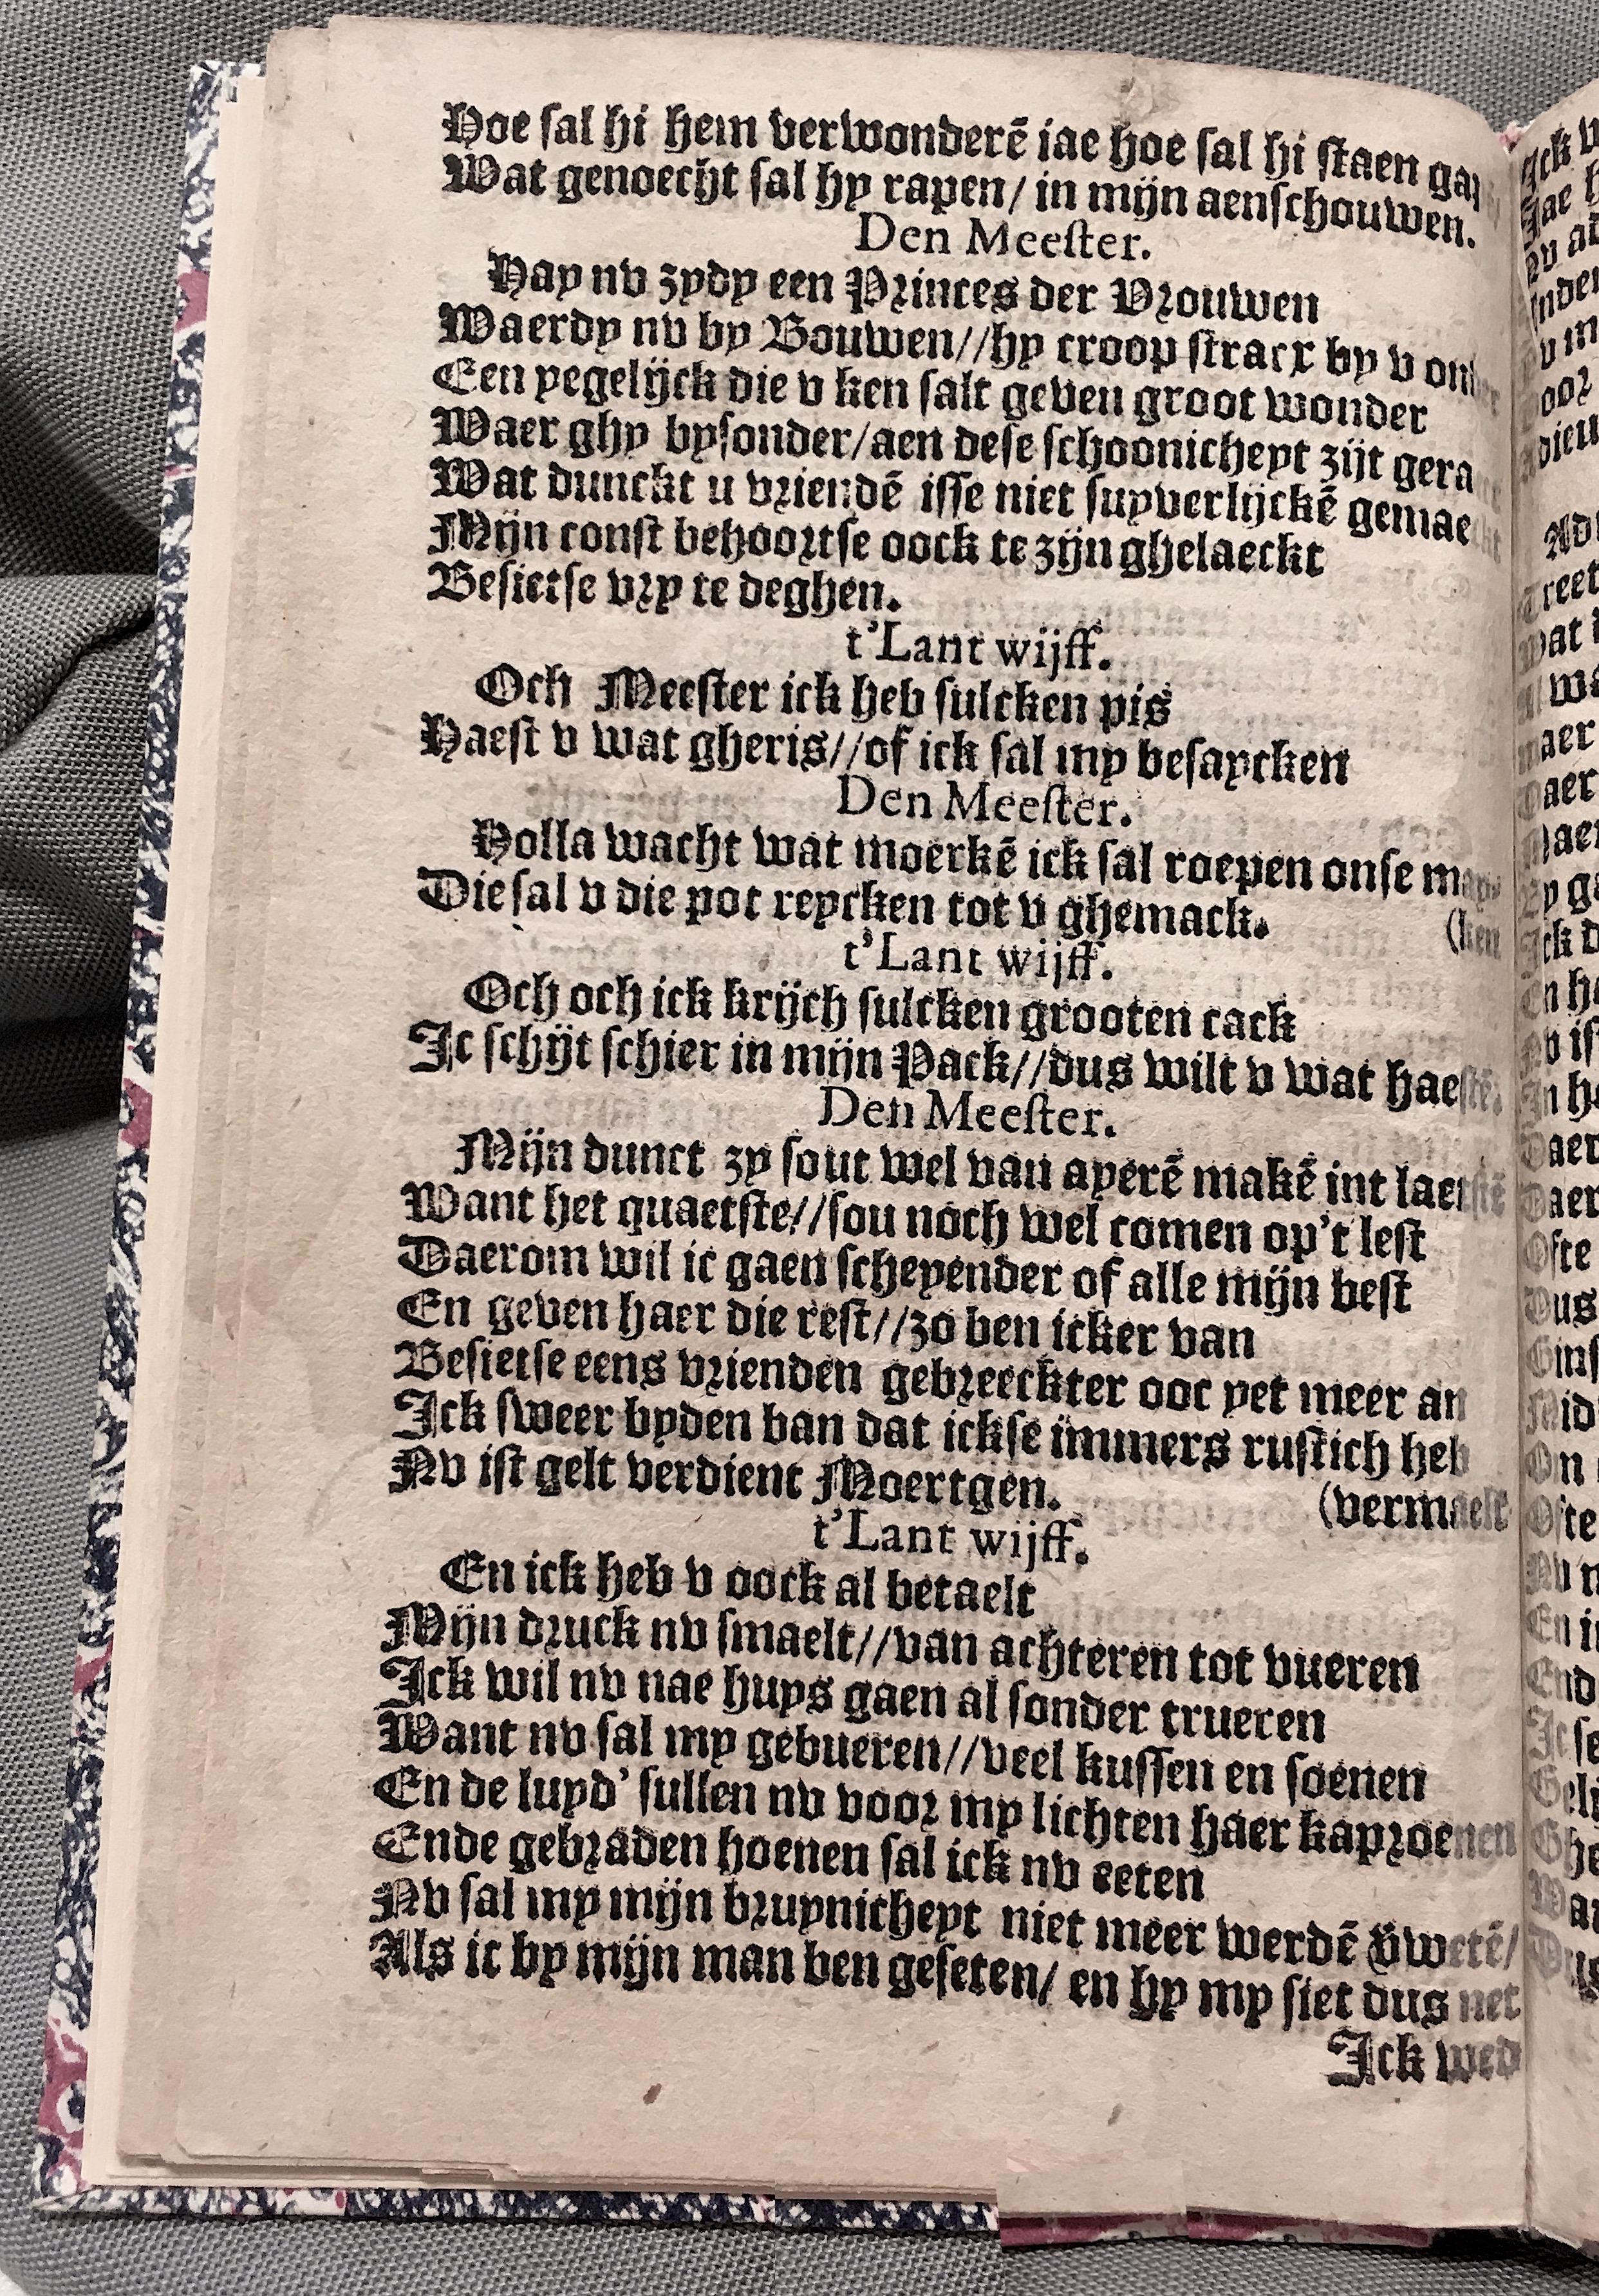 Hoe sal hi hem verwonderē iae hoe sal hi staen gap
Wat genoecht sal hy rapen/ in mijn aenschouwen.
Den Meester.
Hay nv zydy een Princes der Vrouwen
Waerdy nv by Bouwen//hy croop stracx by v onder
Een yegelijck die v ken salt geven groot wonder
Waer ghy bysonder/aen dese schoonicheyt zijt gera
Wat dunckt u vriendē isse niet suyverlijckē gemae
Mijn const behoortse oock te zijn ghelaeckt
Besietse vry te deghen.
t'Lant wijff.
Och Meester ick heb sulcken pis
Haest v wat gheris//of ick sal my besaycken
Den Meester.
Holla wacht wat moerkē ick sal roepen onse may-
Die sal v die pot reycken tot v ghemack. (ken
t'Lant wijff.
Och och ick krijch sulcken grooten cack
Ic schijt schier in mijn Pack//dus wilt v wat haestē.
Den Meester.
Mijn dunct zy sout wel van ayerē makē int laetstē
Want het quaetste//sou noch wel comen op't lest
Daerom wil ic gaen scheyender of alle mijn best
En geven haer die rest//zo ben icker van
Besietse eens vrienden gebreeckter ooc yet meer an
Ick sweer byden ban dat ickse immers rustich heb
Nv ist gelt verdient Moertgen. (vermaelt
t'Lant wijff.
En ick heb v oock al betaelt
Mijn druck nv smaelt//van achteren tot vueren
Ick wil nv nae huys gaen al sonder trueren
Want nv sal my gebueren//veel kussen en soenen
En de luyd' sullen nv voor my lichten haer kaproenen
Ende gebraden hoenen sal ick nv eeten
Nv sal my mijn bruynicheyt niet meer werdē v̈wetē/
Als ic by mijn man ben geseten/ en hy my siet dus net
Ick wed